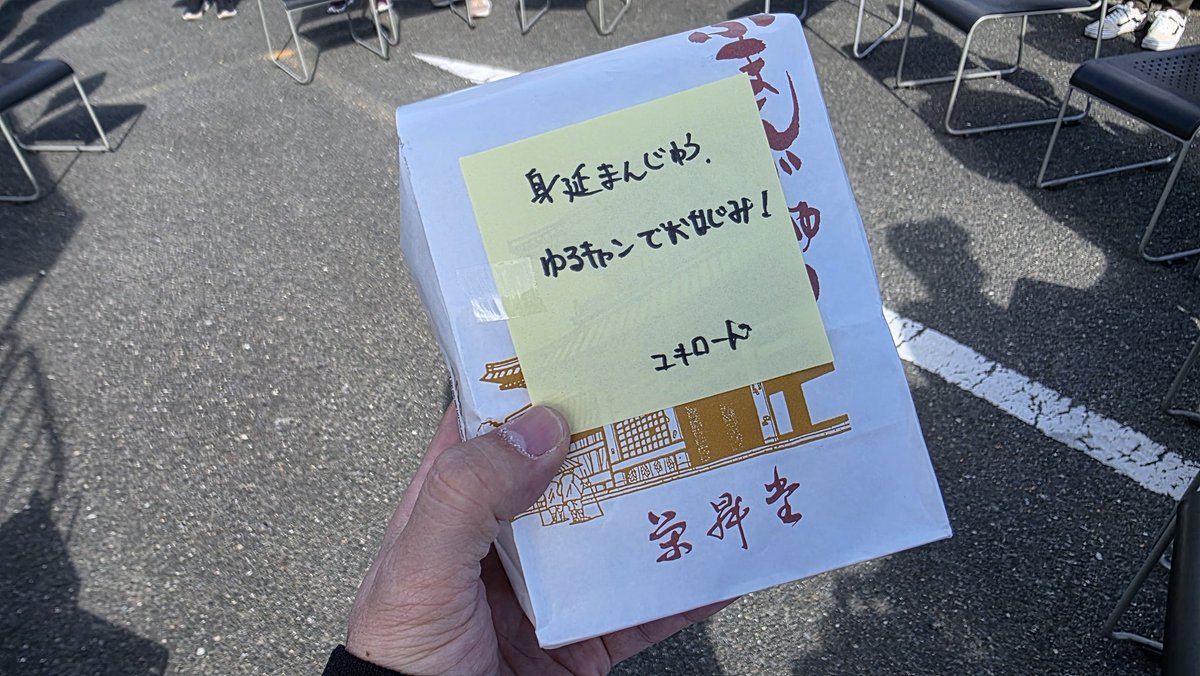 まんじゅう
身延まんじゅう、
ゆるキャンでおなじみ!
ユキロード
栄昇堂